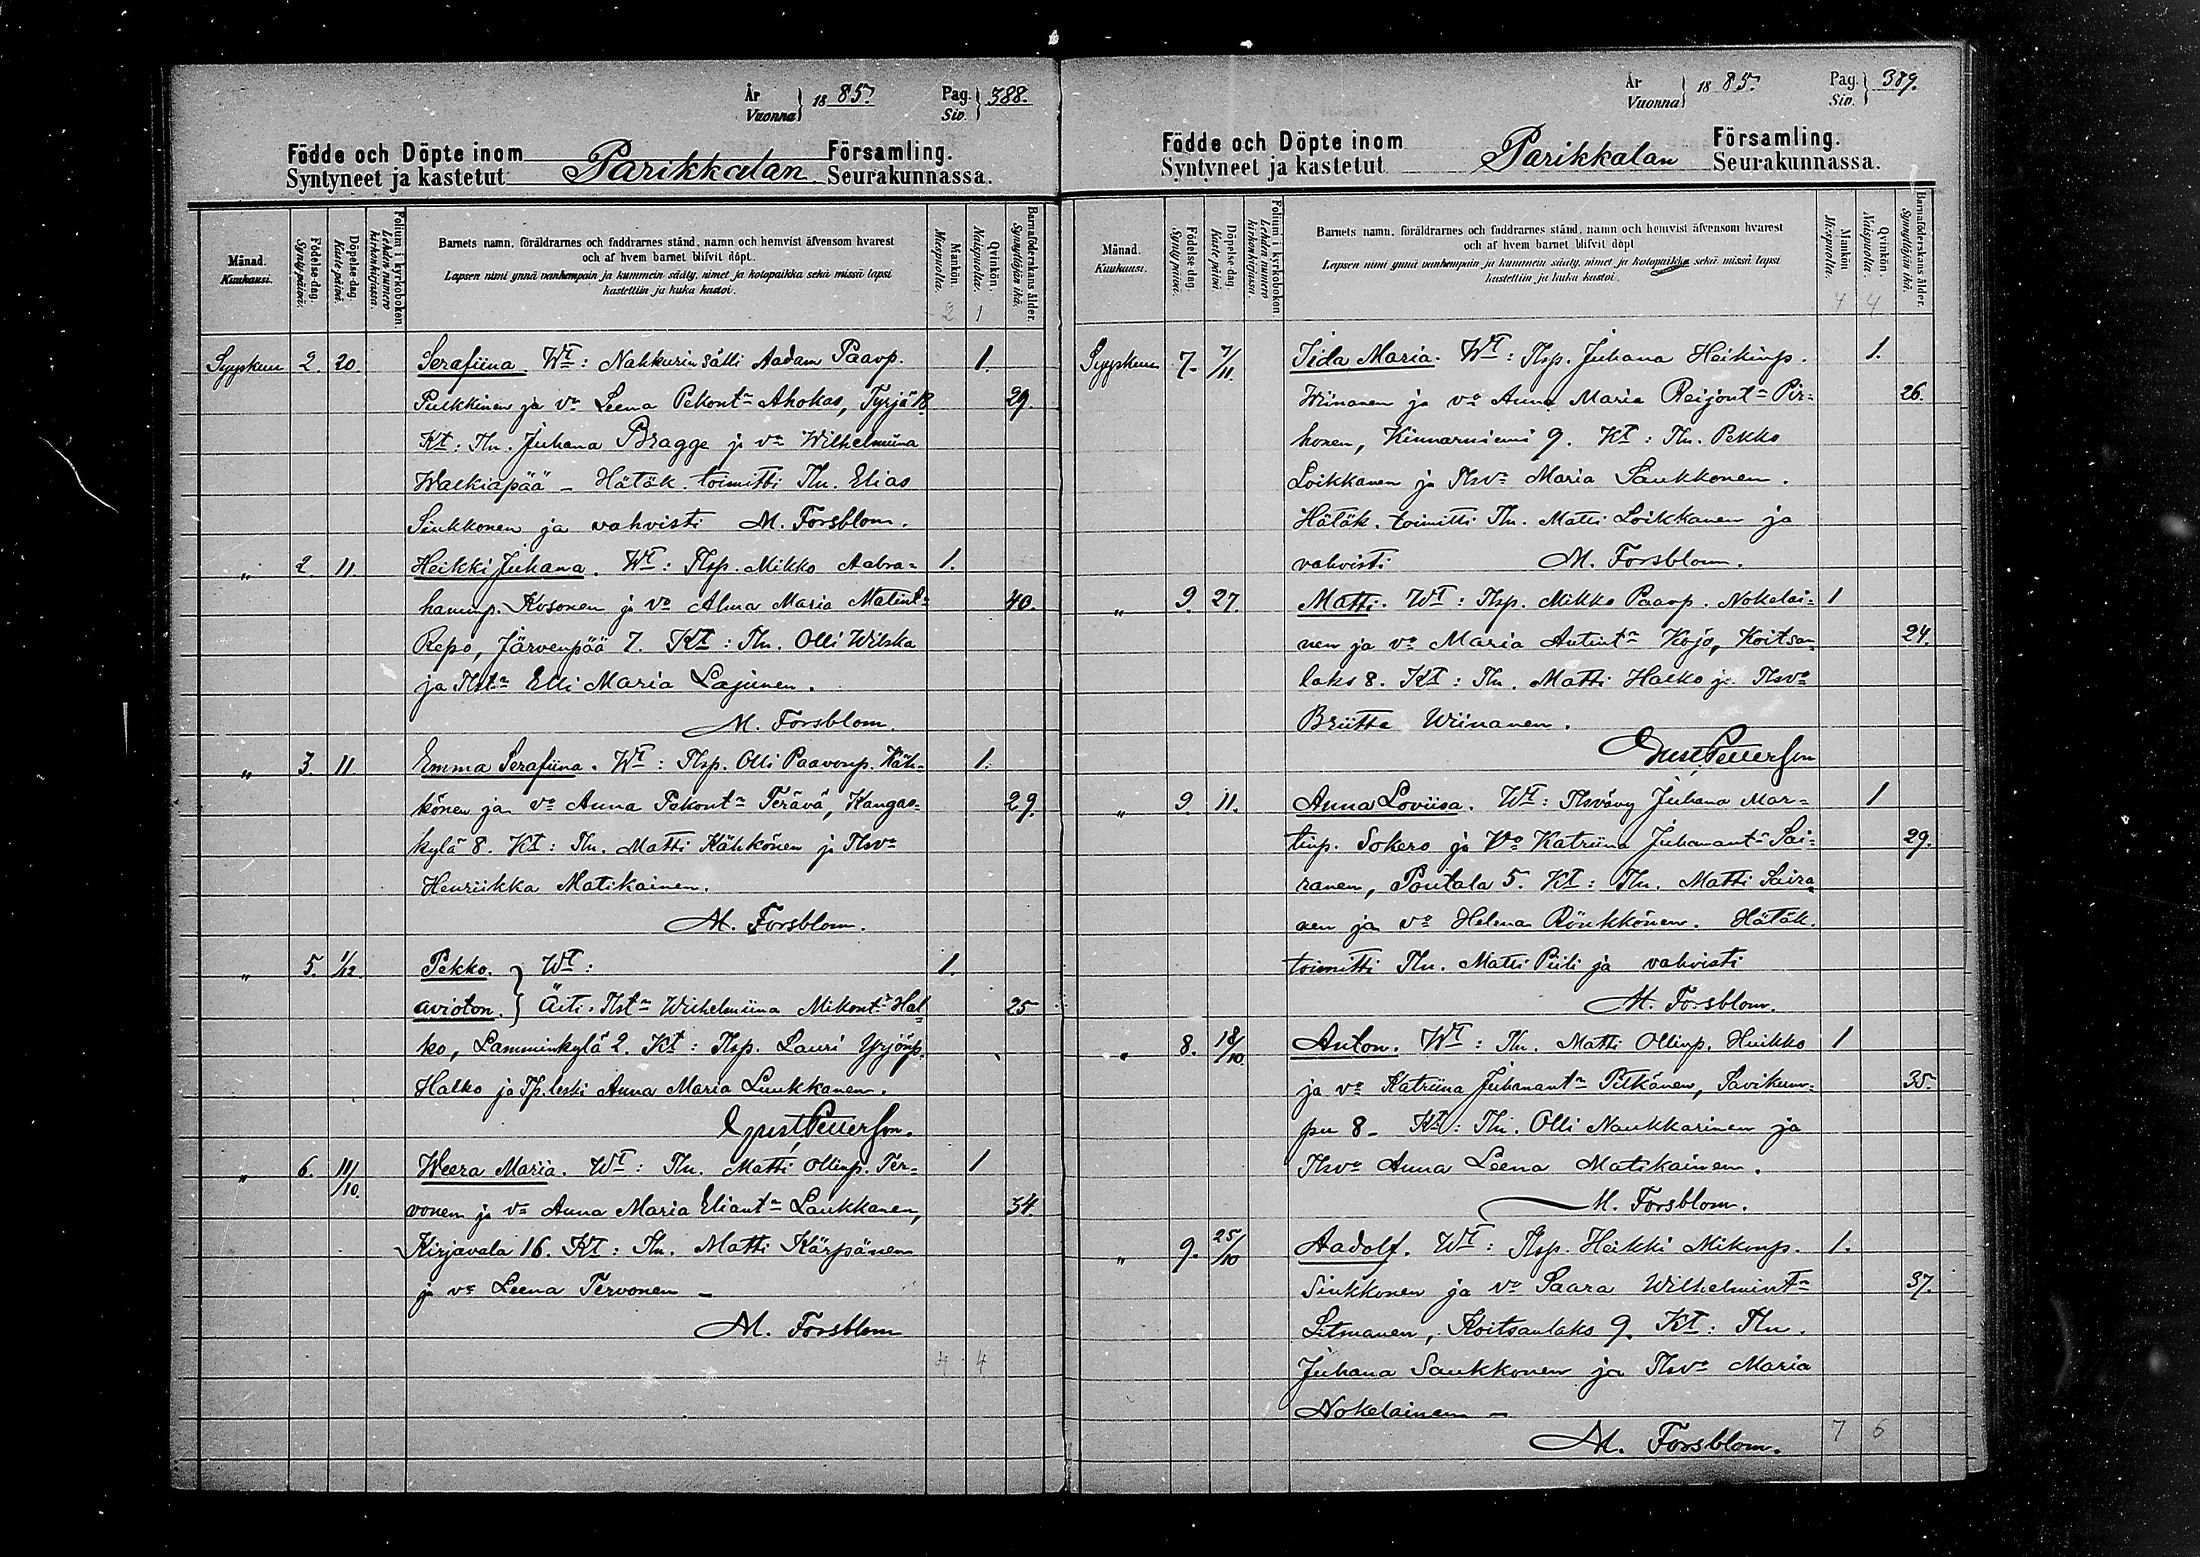 År Vuonna } 1885. Pag. Siv. } 388.
Födde och Döpte inom Församling.
Syntyneet ja kastetut Parikkalan Seurakunnassa.
Månad. Kuukausi.
Födelse-dag. Synty päivä.
Döpelse-dag. Kaste päivä.
Folium i kyrkoboken. Lehden numero kirkonkirjassa.
Barnets namn, föräldrarnes och faddrarnes stånd, namn och hemvist äfvensom hvarest
och af hvem barnet blifvit döpt.
Lapsen nimi ynnä vanhempain ja kummein sääty, nimet ja kotopaikka sekä missä lapsi
kastettiin ja kuka kastoi.
Mankön. Miespuolia.
Qvinkön. Naispuolia.
Barnaföderskans ålder. Synnyttäjän ikä.
2 1
Syyskuu 2. 20. Serafiina. Wt: Nahkurin sälli Aadam Paavp. 1.
Pulkkinen ja vo Leena Pekont:r Ahokas, Tyrjä 18 29.
Kt: Tln. Juhana Bragge ja vo Wilhelmiina
Walkiapää – Hätäk. toimitti Tln. Elias
Sinkkonen ja vahvisti M. Forsblom.
" 2. 11. Heikki Juhana. Wt: Tlsp. Mikko Aabra= 1.
haminp. Kosonen ja vo Alma Maria Matint:r 40.
Repo, Järvenpää 7. Kt: Tln. Olli Wilska
ja Tlst:r Elli Maria Lajunen.
M. Forsblom.
" 3. 11. Emma Serafiina. Wt: Tlsp. Olli Paavonp. Käh= 1.
könen ja vo Anna Pekont:r Terävä, Kangas= 29.
kylä 8. Kt: Tln. Matti Kähkönen ja Tlsvo
Henriikka Matikainen.
M. Forsblom.
" 5. 1/12. Pekko. } Wt: 1.
avioton. } Äiti. Tlst:r Wilhelmiina Mikont:r Hal= 25
ko, Lamminkylä 2. Kt: Tlsp. Lauri Yrjönp.
Halko ja Tp. leski Anna Maria Luukkanen.
Gust. Petterson.
" 6. 11/10. Weera Maria. Wt: Tln. Matti Ollinp. Ter= 1
vonen ja vo Anna Maria Eliant:r Laukkanen, 34.
Kirjavala 16. Kt: Tln. Matti Kärpänen
ja vo Leena Tervonen –
M. Forsblom
4 4
År Vuonna } 1885. Pag. Siv. } 389.
Födde och Döpte inom Församling.
Syntyneet ja kastetut Parikkalan Seurakunnassa.
Månad. Kuukausi.
Födelse-dag. Synty päivä.
Döpelse-dag. Kaste päivä.
Folium i kyrkoboken. Lehden numero kirkonkirjassa.
Barnets namn, föräldrarnes och faddrarnes stånd, namn och hemvist äfvensom hvarest
och af hvem barnet blifvit döpt
Lapsen nimi ynnä vanhempain ja kummein sääty, nimet ja kotopaikka sekä missä lapsi
kastettiin ja kuka kastoi.
Mankön. Miespuolia.
Qvinkön. Naispuolia.
Barnaföderskans ålder. Synnyttäjän ikä.
4 4
Syyskuu 7. 7/11. Iida Maria. Wt: Tlsp. Juhana Heikinp. 1.
Wiinanen ja vo Anna Maria Reijont:r Pir= 26.
honen, Kinnarniemi 9. Kt: Tln. Pekko
Loikkanen ja Tlsvo Maria Saukkonen.
Hätäk. toimitti Tln. Matti Loikkanen ja
vahvisti M. Forsblom.
" 9. 27. Matti. Wt: Tlsp. Mikko Paavp. Nokelai= 1
nen ja vo Maria Antint:r Kojo, Koitsan= 24.
laks 8. Kt: Tln. Matti Halko ja Tlsvo
Briitta Wiinanen.
Gust. Petterson
" 9. 11. Anna Loviisa. Wt: Tlsvävy Juhana Mar= 1
tinp. Sokero ja Vo Katriina Juhanant:r Sai= 29.
ranen, Poutala 5. Kt: Tln. Matti Saira=
nen ja vo Helena Rönkkönen. Hätäk.
toimitti Tln. Matti Piili ja vahvisti
M. Forsblom.
" 8. 18/10. Anton. Wt: Tln. Matti Ollinp. Huikko 1
ja vo Katriina Juhanant:r Pitkänen, Savikum= 35.
pu 8 – Kt: Tln. Olli Naukkarinen ja
Tlsvo Anna Leena Matikainen.
M. Forsblom.
" 9. 25/10 Aadolf. Wt: Tlsp. Heikki Mikonp. 1.
Sinkkonen ja vo Saara Wilhelmint:r 37.
Litmanen, Koitsanlaks 9. Kt: Tln.
Juhana Saukkonen ja Tlsvo Maria
Nokelainen –
M. Forsblom.
7 6